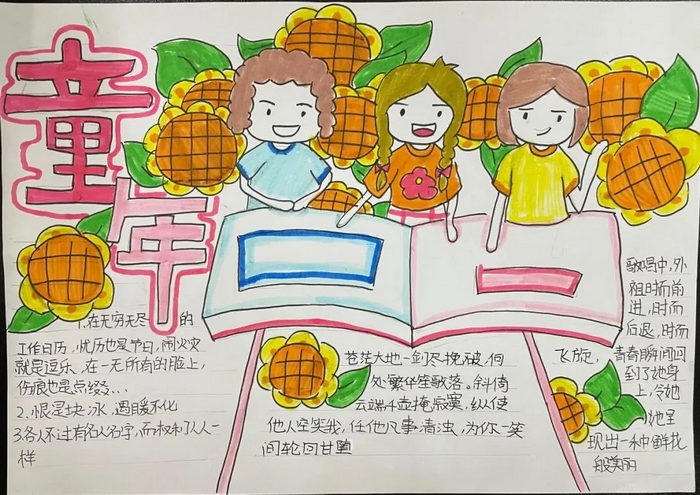 童
年
1.在无穷无尽的
工作日历,忧历也是节日,闹火灾
就是逗乐、在一无所有的脸上,
伤痕也是点缀...
2.恨是块冰,遇暖不化
3.各人不过有名人名字,而权利人人一
样
苍茫大地一剑尽挽破,何
处繁华笙歌落。斜倚
云端千壶掩寂寞,纵使
他人空笑我,任他凡事清浊,为你一笑
间轮回甘堕
歌唱中,外
祖时而前
进,时而
后退,时而
飞旋,青春瞬间回
到了她身
上,令她
她呈
现出一种鲜花
般美丽